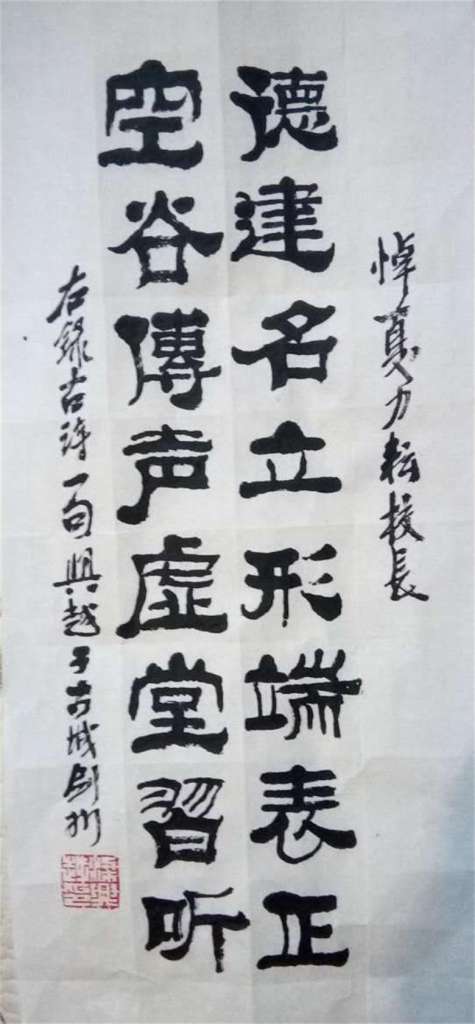 悼夏力耘校長
德建名立形端表正
空谷傳声虚堂習听
右録古诗一句興越于古城剑州